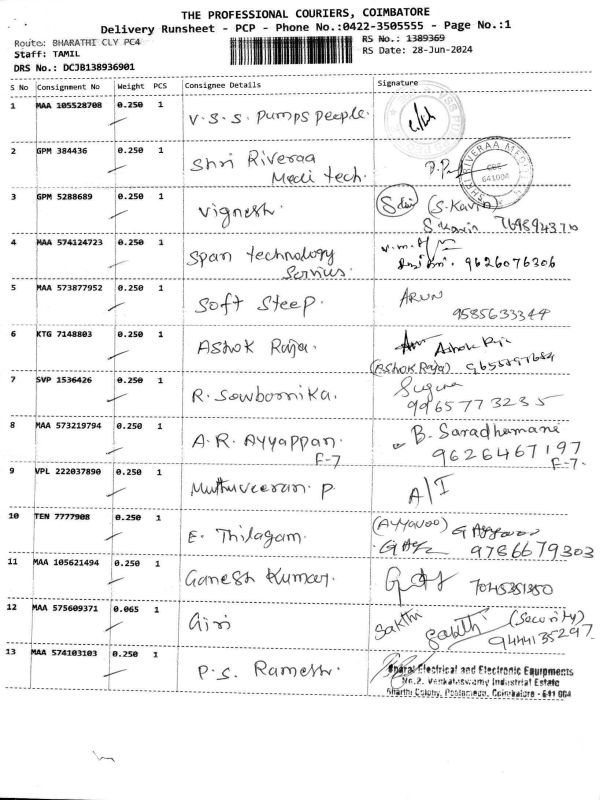 THE PROFESSIONAL COURIERS, COIMBATORE
Delivery Runsheet - PCP - Phone No.:0422-3505555 - Page No.:1
Route: BHARATHI CLY PC4
RS No.: 1389369
Staff: TAMIL
RS Date: 28-Jun-2024
DRS No.: DCJB138936901
S No Consignment No Weight PCS Consignee Details Signature
1 MAA 105528708 0.250 1 V.S.S. Pumps People.
2 GPM 384436 0.250 1 Shri Riveraa
Medi tech.
SHRI RIVERAA MEDI
CBE
641004
3 GPM 5288689 0.250 1 Vignesh. (S.Kavin)
S.Kavin
4 MAA 574124723 0.250 1 Span technology
Services. 9626076306
5 MAA 573877952 0.250 1 Soft Steep. ARUN
9585633344
6 KTG 7148803 0.250 1 Ashok Raja. Ashok Raja
(Ashok.Raja)
7 SVP 1536426 0.250 1 R. Sowbornika. Suguna
9965773235
8 MAA 573219794 0.250 1 A.R. Ayyappan. B. Saradhamani
F-7 9626467197
F-7.
9 VPL 222037890 0.250 1 Muthuveeran. P. A/I
10 TEN 7777908 0.250 1 E. Thilagam. (AYYAVOO) G Ayyavoo
9786679303
11 MAA 105621494 0.250 1 Ganesh Kumar.
12 MAA 575609371 0.065 1 Giri Sakthi Sakthi (Security)
9444135297
13 MAA 574103103 0.250 1 P.S. Ramesh.
Bharat Electrical and Electronic Equipments
No.2, Venkataswamy Industrial Estate
Bharthi Colony, Peelamedu, Coimbatore - 641 004